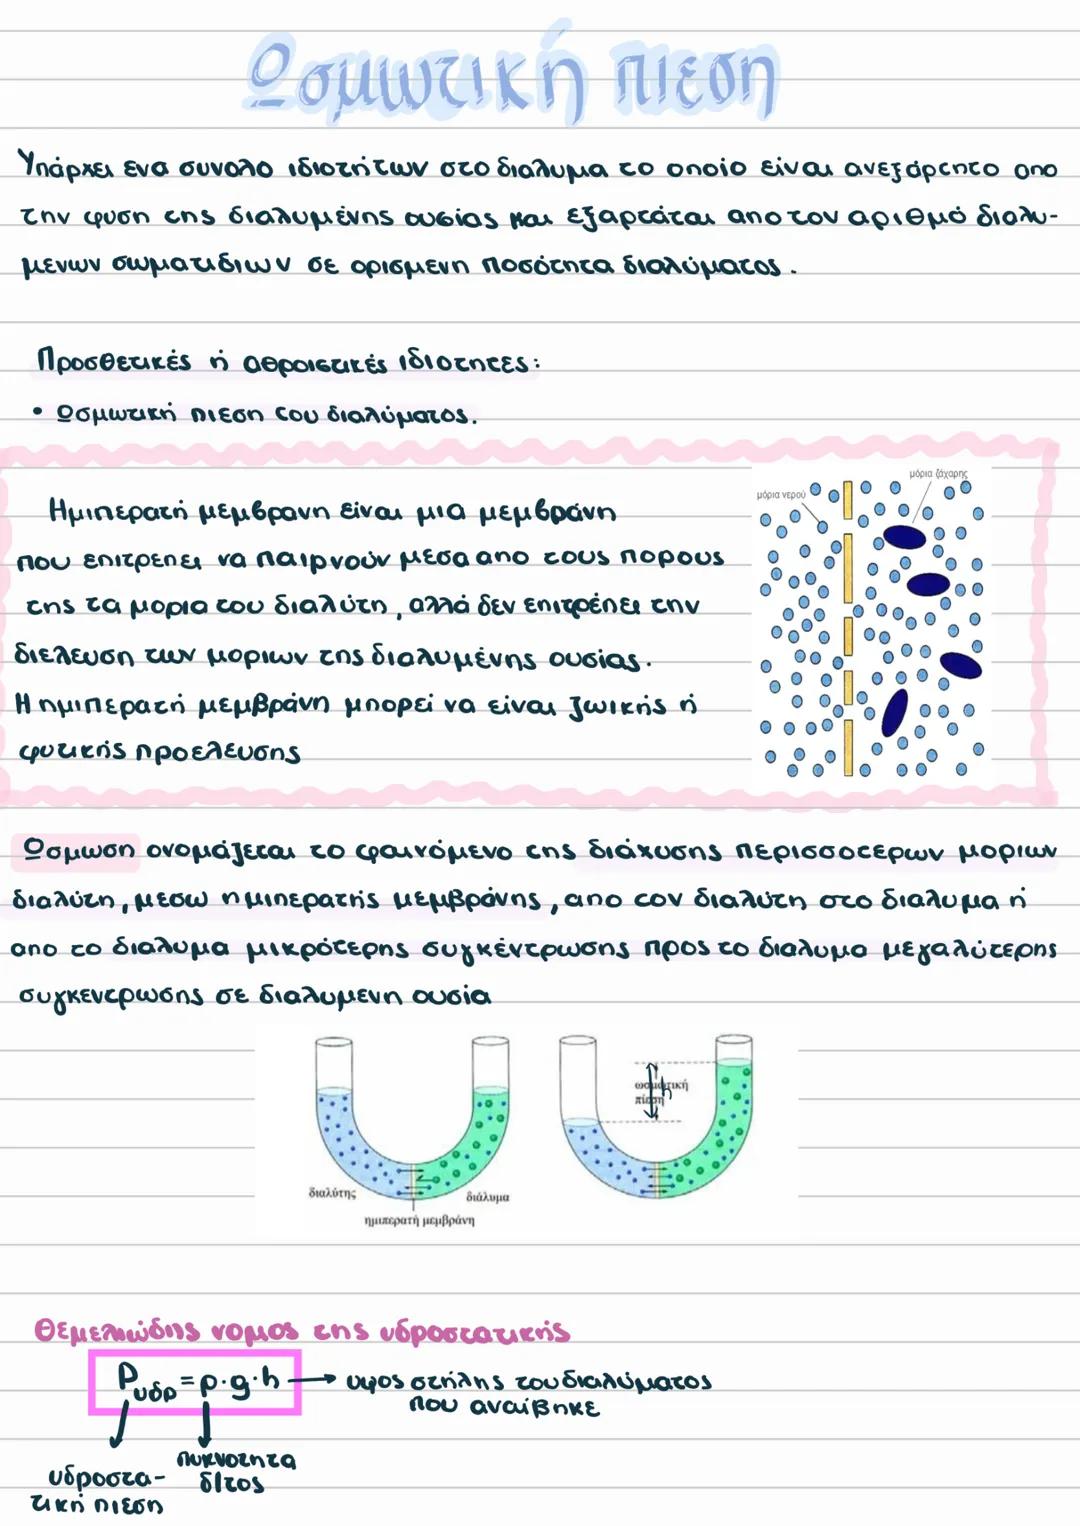 Ωσμωτική πιεση
Υπάρχει ενα συνολο ιδιοτήτων στο διαλυμα το οποίο είναι ανεξάρτητο απο
την φυση της διαλυμένης ουσίας και εξαρτάται απο τον αριθμό διαλυ-
μενων σωματιδιων σε ορισμενη ποσότητα διαλύματος.
Προσθετικές ή αθροιστικές ιδιοτητες:
• Ωσμωτική πιεση του διαλύματος.
μόρια ζάχαρης
μόρια νερού
Ημιπερατή μεμβρανη είναι μια μεμβράνη
που επιτρεπει να παιρνούν μεσα απο τους πορους
της τα μορια του διαλύτη, αλλά δεν επιτρέπει την
διελευση των μοριων της διαλυμένης ουσίας.
Η ημιπερατή μεμβράνη μπορεί να είναι ζωικής ή
φυτικής προελευσης
Ωσμωση ονομάζεται το φαινόμενο της διάχυσης περισσοτερων μοριων
διαλύτη, μεσω ημιπερατής μεμβράνης, απο τον διαλύτη στο διαλυμα ή
απο το διαλυμα μικρότερης συγκέντρωσης προς το διαλυμα μεγαλύτερης
συγκεντρωσης σε διαλυμενη ουσία
ωσμωτική
πίεση
h
διαλύτης
διάλυμα
ημιπερατή μεμβράνη
Θεμελιώδης νομος της υδροστατικής
Pυδρ = ρ·g·h → υψος στήλης του διαλύματος
που αναίβηκε
πυκνοτητα
δ/τος
υδροστα-
τική πιεση